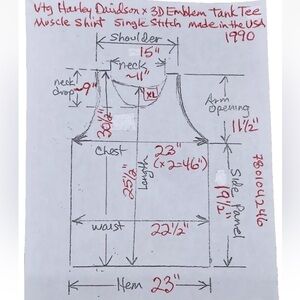 Vtg Harley Davidson x 3D Emblem Tank Tee
Muscle Shirt Single Stitch made in the USA
1990
Shoulder
15"
neck
~11"
neck
drop
~9"
XL
30½"
Arm
Opening
11½"
Chest 23"
(x2=46")
25½"
Length
Side Panel
19½"
780104246
Waist 22½"
Hem 23"